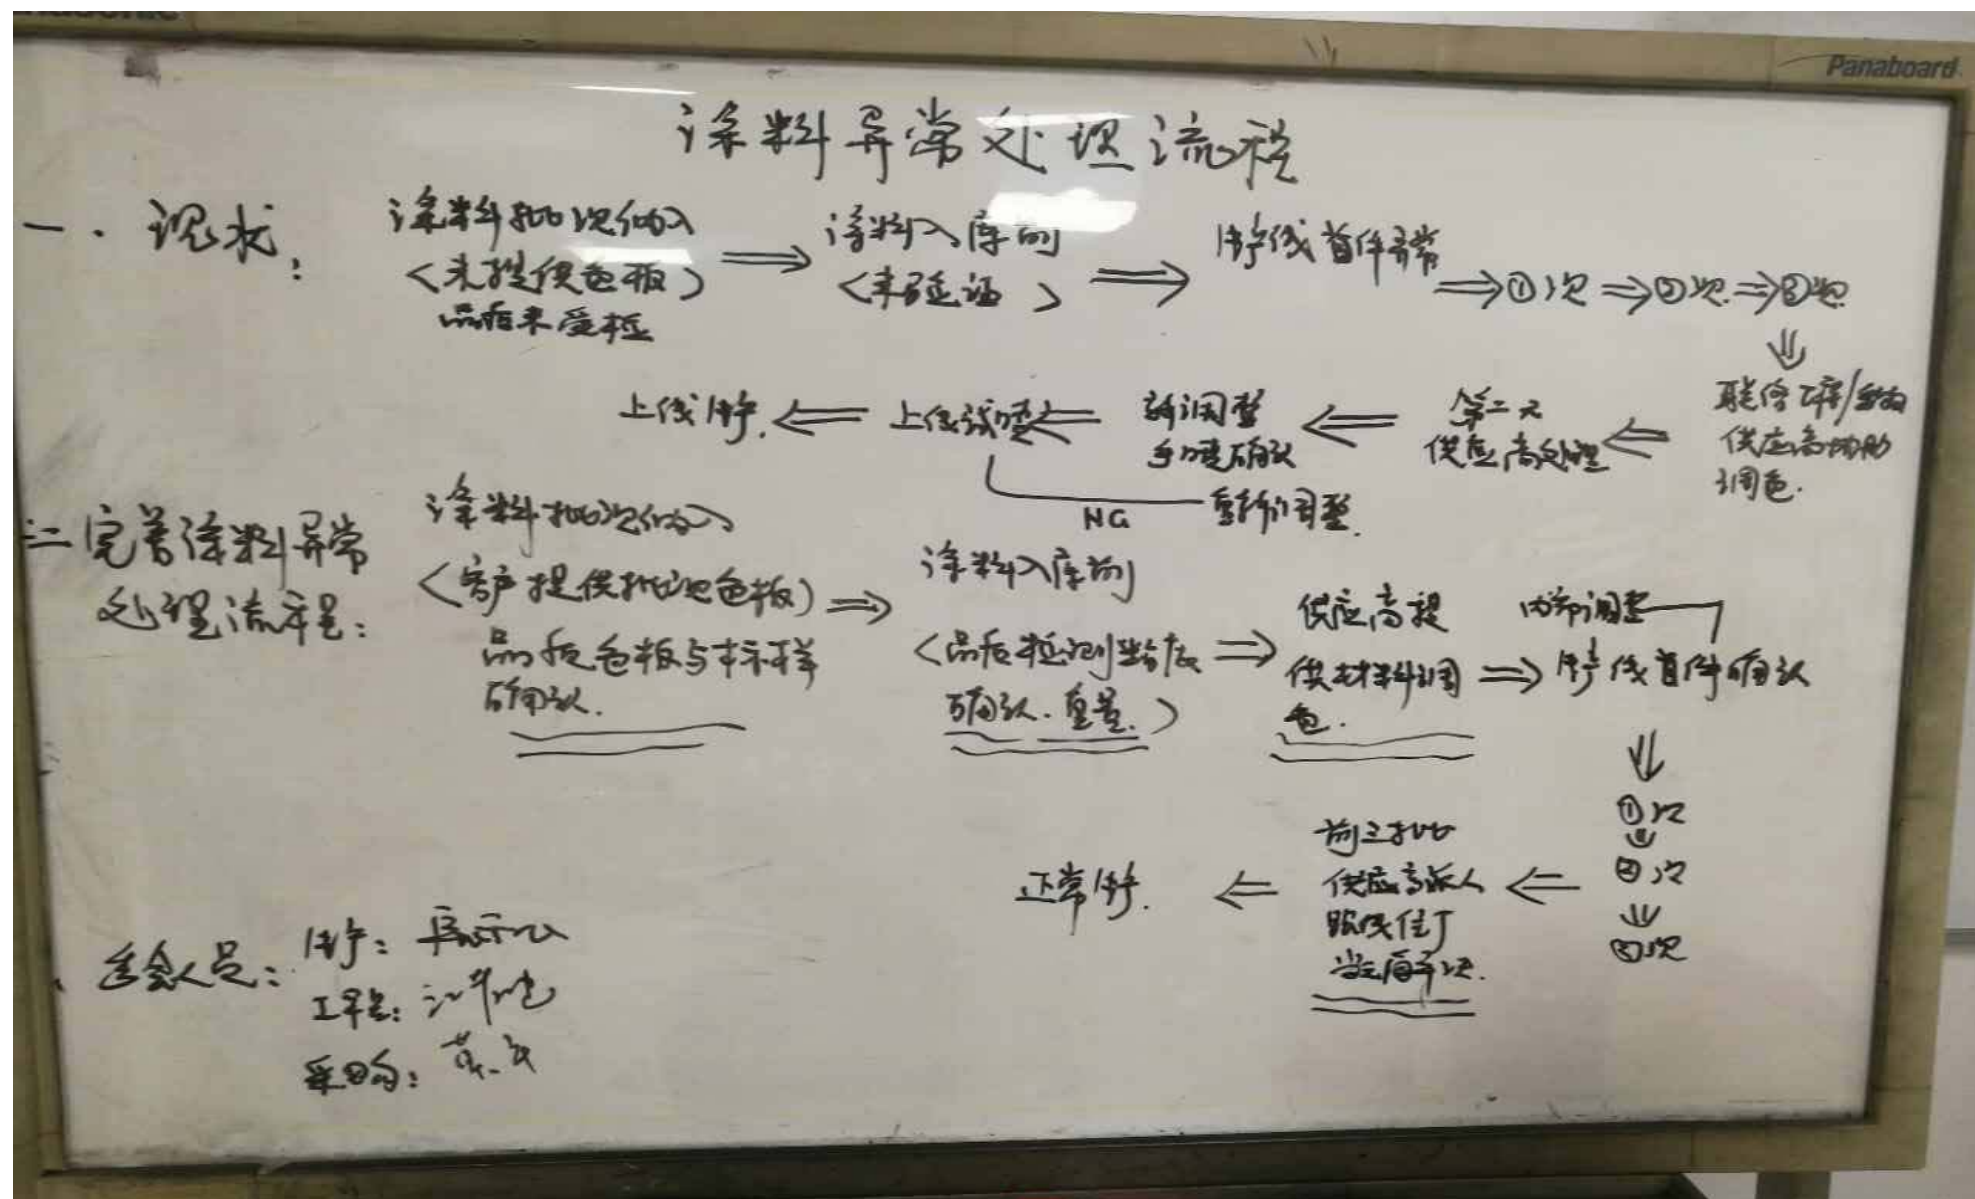 Panaboard
涂料异常处理流程
一、现状:
涂料批次纳入
<未提供色板>
品质未受检
涂料入库前
<未验证>
生产线首件异常
①次 ②次 ③次
联络工程/采购
供应商协助
调色.
第二天
供应商处理
新调整
手喷确认
上线试喷
上线生产.
NG
重新调整.
二完善涂料异常
处理流程:
涂料批次纳入
<客户提供批次色板>
品质色板与标准样
确认.
涂料入库前
<品质检测粘度
确认.重量.>
供应商提
供材料调
色.
内部调整
生产线首件确认
①次
②次
③次
前三批
供应商派人
跟线
正常生产.
参会人员:
生产:
工程:
采购: